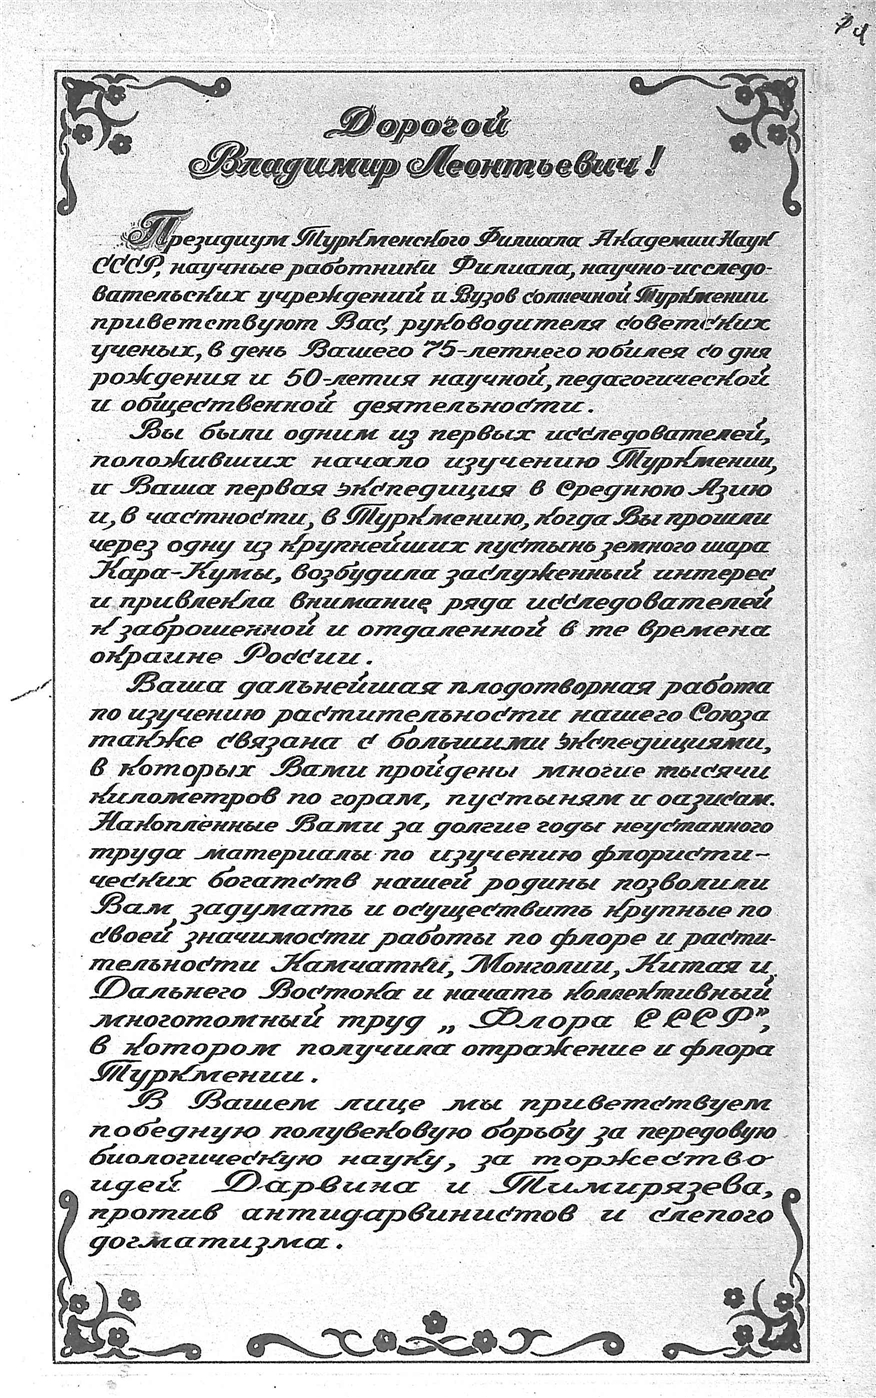 Дорогой
Владимир Леонтьевич!
Президиум Туркменского Филиала Академии Наук
СССР, научные работники Филиала, научно-исследо-
вательских учреждений и Вузов солнечной Туркмении
приветствуют Вас, руководителя советских
ученых, в день Вашего 75-летнего юбилея со дня
рождения и 50-летия научной, педагогической
и общественной деятельности.
Вы были одним из первых исследователей,
положивших начало изучению Туркмении,
и Ваша первая экспедиция в Среднюю Азию
и, в частности, в Туркмению, когда Вы прошли
через одну из крупнейших пустынь земного шара
Кара-Кумы, возбудила заслуженный интерес
и привлекла внимание ряда исследователей
к заброшенной и отдаленной в те времена
окраине России.
Ваша дальнейшая плодотворная работа
по изучению растительности нашего Союза
также связана с большими экспедициями,
в которых Вами пройдены многие тысячи
километров по горам, пустыням и оазисам.
Накопленные Вами за долгие годы неустанного
труда материалы по изучению флористи-
ческих богатств нашей родины позволили
Вам задумать и осуществить крупные по
своей значимости работы по флоре и расти-
тельности Камчатки, Монголии, Китая и
Дальнего Востока и начать коллективный
многотомный труд „Флора СССР",
в котором получила отражение и флора
Туркмении.
В Вашем лице мы приветствуем
победную полувековую борьбу за передовую
биологическую науку, за торжество
идей Дарвина и Тимирязева,
против антидарвинистов и слепого
догматизма.